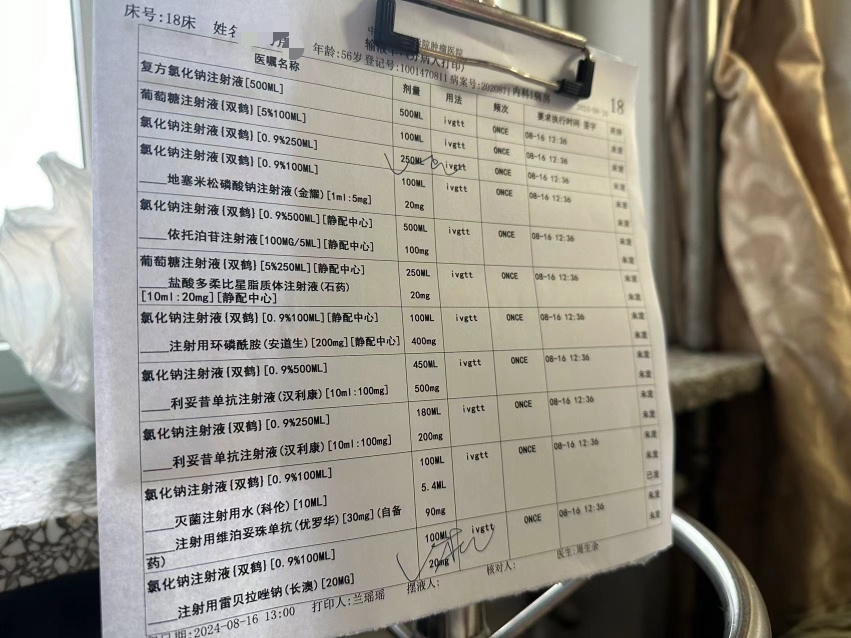 床号:18床 姓名
院肿瘤医院
年龄:56岁 登记号:1001470811 病案号:2020871 内科1病房
18
医嘱名称 剂量 用法 频次 要求执行时间 签字
复方氯化钠注射液[500ML] 500ML ivgtt ONCE 08-16 12:36
葡萄糖注射液{双鹤}[5%100ML] 100ML ivgtt ONCE 08-16 12:36
氯化钠注射液{双鹤}[0.9%250ML] 250ML ivgtt ONCE 08-16 12:36
氯化钠注射液{双鹤}[0.9%100ML] 100ML ivgtt ONCE 08-16 12:36 未发
____地塞米松磷酸钠注射液(金耀)[1ml:5mg] 20mg 未发
氯化钠注射液{双鹤}[0.9%500ML][静配中心] 500ML ivgtt ONCE 08-16 12:36 未发
____依托泊苷注射液[100MG/5ML][静配中心] 100mg 未发
葡萄糖注射液{双鹤}[5%250ML][静配中心] 250ML ivgtt ONCE 08-16 12:36 未发
____盐酸多柔比星脂质体注射液(石药) 20mg 未发
[10ml:20mg][静配中心]
氯化钠注射液{双鹤}[0.9%100ML][静配中心] 100ML ivgtt ONCE 08-16 12:36 未发
____注射用环磷酰胺(安道生)[200mg][静配中心] 400mg 未发
氯化钠注射液{双鹤}[0.9%500ML] 450ML ivgtt ONCE 08-16 12:36 未发
____利妥昔单抗注射液(汉利康)[10ml:100mg] 500mg 未发
氯化钠注射液{双鹤}[0.9%250ML] 180ML ivgtt ONCE 08-16 12:36 未发
____利妥昔单抗注射液(汉利康)[10ml:100mg] 200mg 未发
氯化钠注射液{双鹤}[0.9%100ML] 100ML ivgtt ONCE 08-16 12:36 未发
____灭菌注射用水(科伦)[10ML] 5.4ML 未发
____注射用维泊妥珠单抗(优罗华)[30mg](自备 90mg 已发
药)
氯化钠注射液{双鹤}[0.9%100ML] 100ML ivgtt ONCE 08-16 12:36 未发
____注射用雷贝拉唑钠(长澳)[20MG] 20mg 未发
日期:2024-08-16 13:00 打印人:兰瑶瑶 摆液人: 核对人: 医生:周生余